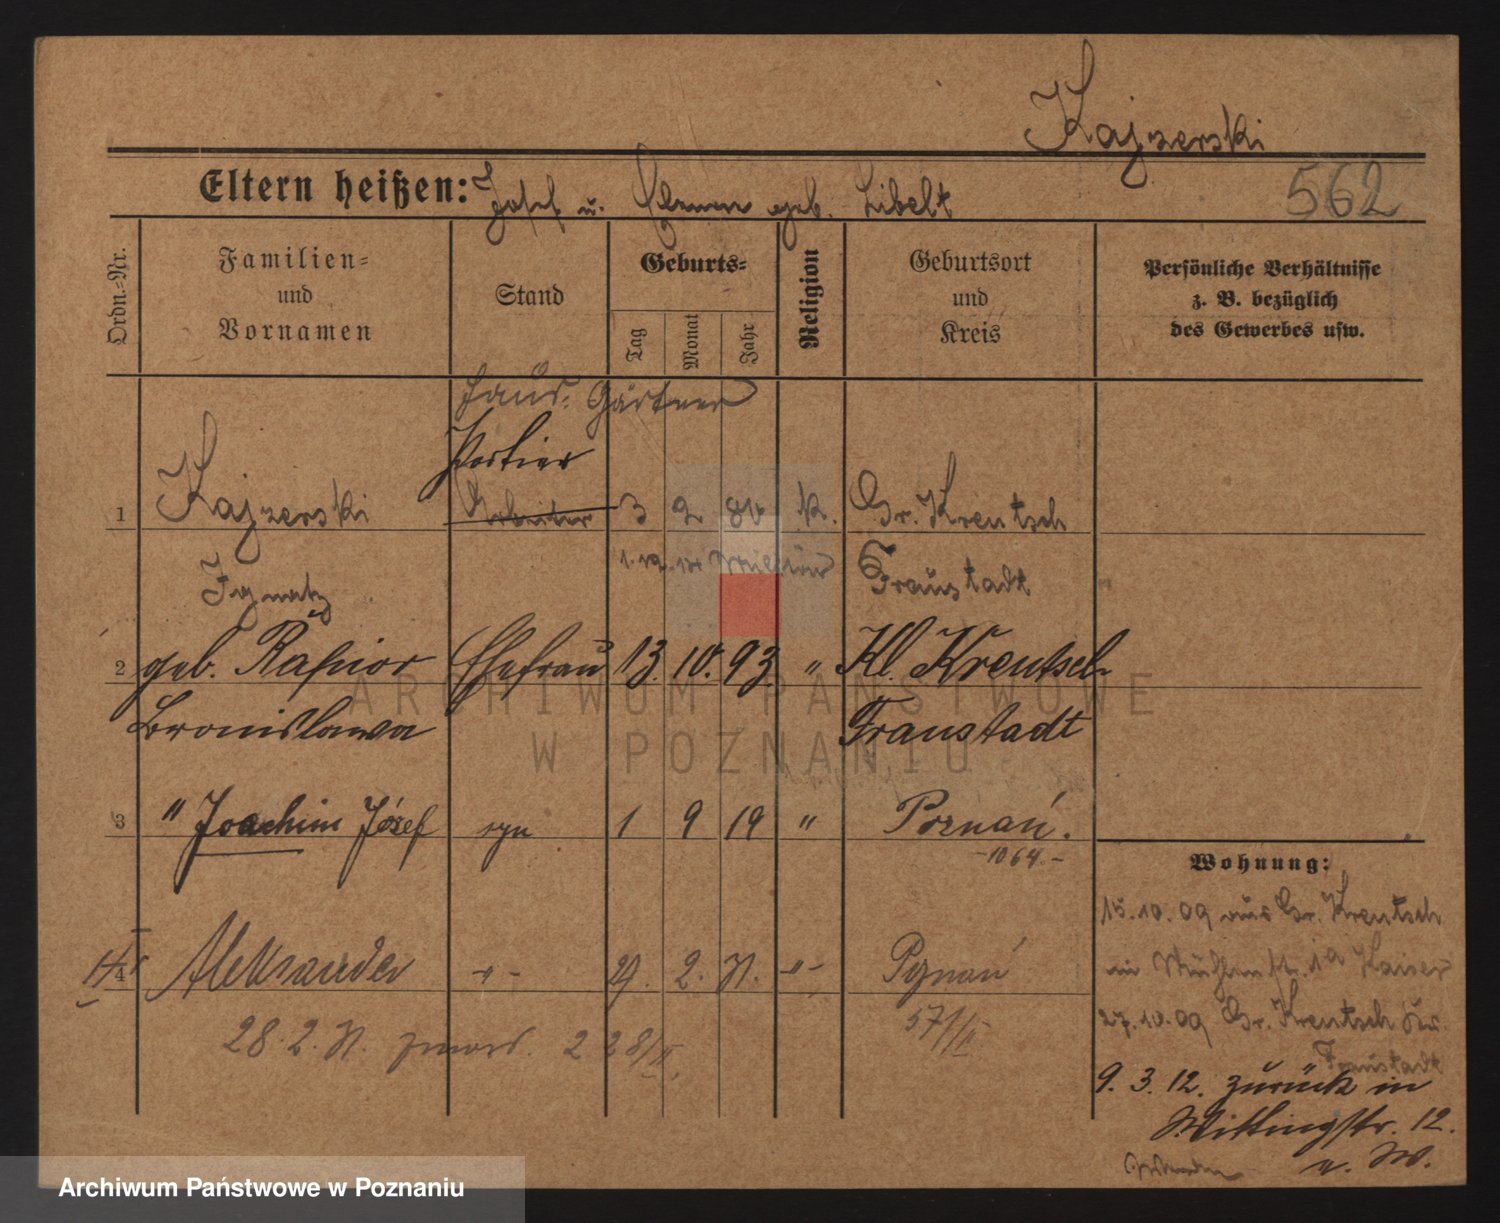 Kajzerski
Eltern heißen: Josef u. geb. Libelt
562
Ordn.-Nr.
Familien-
und
Vornamen
Stand
Geburts-
Tag
Monat
Jahr
Religion
Geburtsort
und
Kreis
Persönliche Verhältnisse
z. B. bezüglich
des Gewerbes usw.
Haus-Gärtner
Portier
1 Kajzerski Arbeiter 3 2 K. Gr. Kreutsch
Ignatz Fraustadt
2 geb. Ratajczak Ehefrau 13. 10. 93. " Kl. Kreutsch
Bronislawa Fraustadt
3 " Joachim Józef syn 1 9 19 " Poznań.
-1064.-
4 Aleksander -"- 29. 2. -"- Poznań
28. 2. 2 28/II.
571/II
Wohnung:
15.10.09 aus Gr. Kreutsch
in Kaiser
27.10.09 Gr. Kreutsch Kr.
Fraustadt
9. 3. 12. zurück in
Wittingstr. 12.
ARCHIWUM PAŃSTWOWE
W POZNANIU
Archiwum Państwowe w Poznaniu